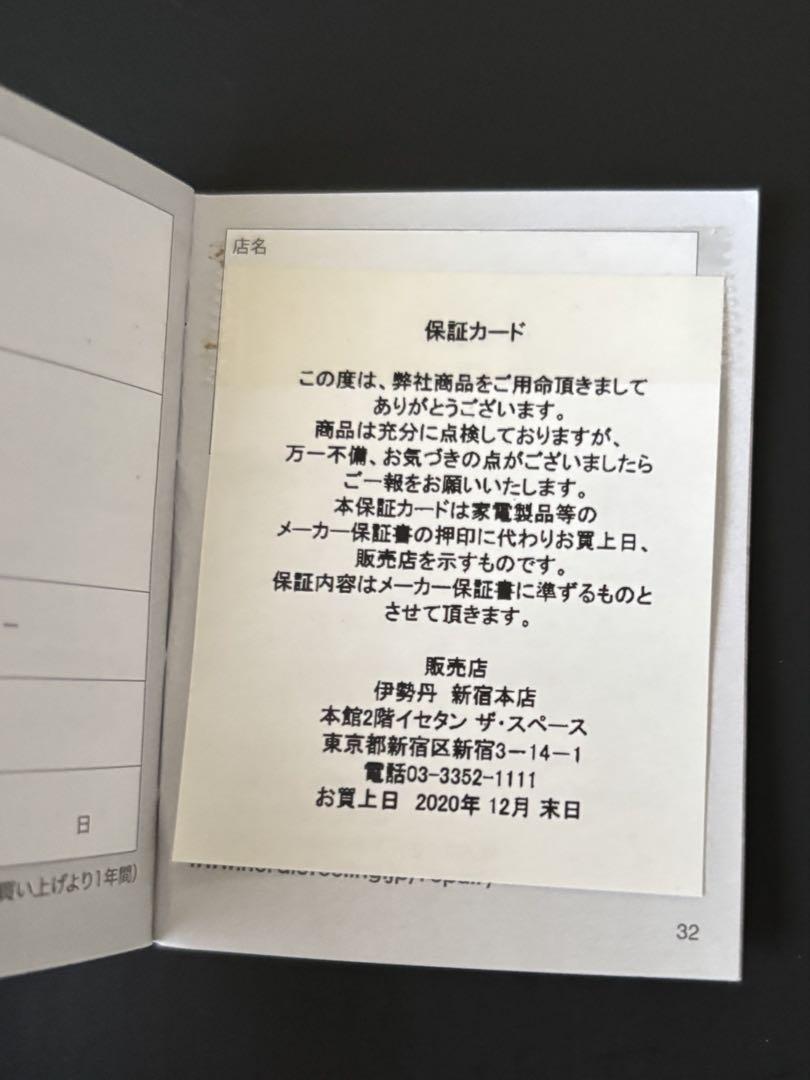 店名
保証カード
この度は、弊社商品をご用命頂きまして
ありがとうございます。
商品は充分に点検しておりますが、
万一不備、お気づきの点がございましたら
ご一報をお願いいたします。
本保証カードは家電製品等の
メーカー保証書の押印に代わりお買上日、
販売店を示すものです。
保証内容はメーカー保証書に準ずるものと
させて頂きます。
販売店
伊勢丹 新宿本店
本館2階イセタン ザ・スペース
東京都新宿区新宿3-14-1
電話03-3352-1111
お買上日 2020年 12月 末日
日
買い上げより1年間)
32